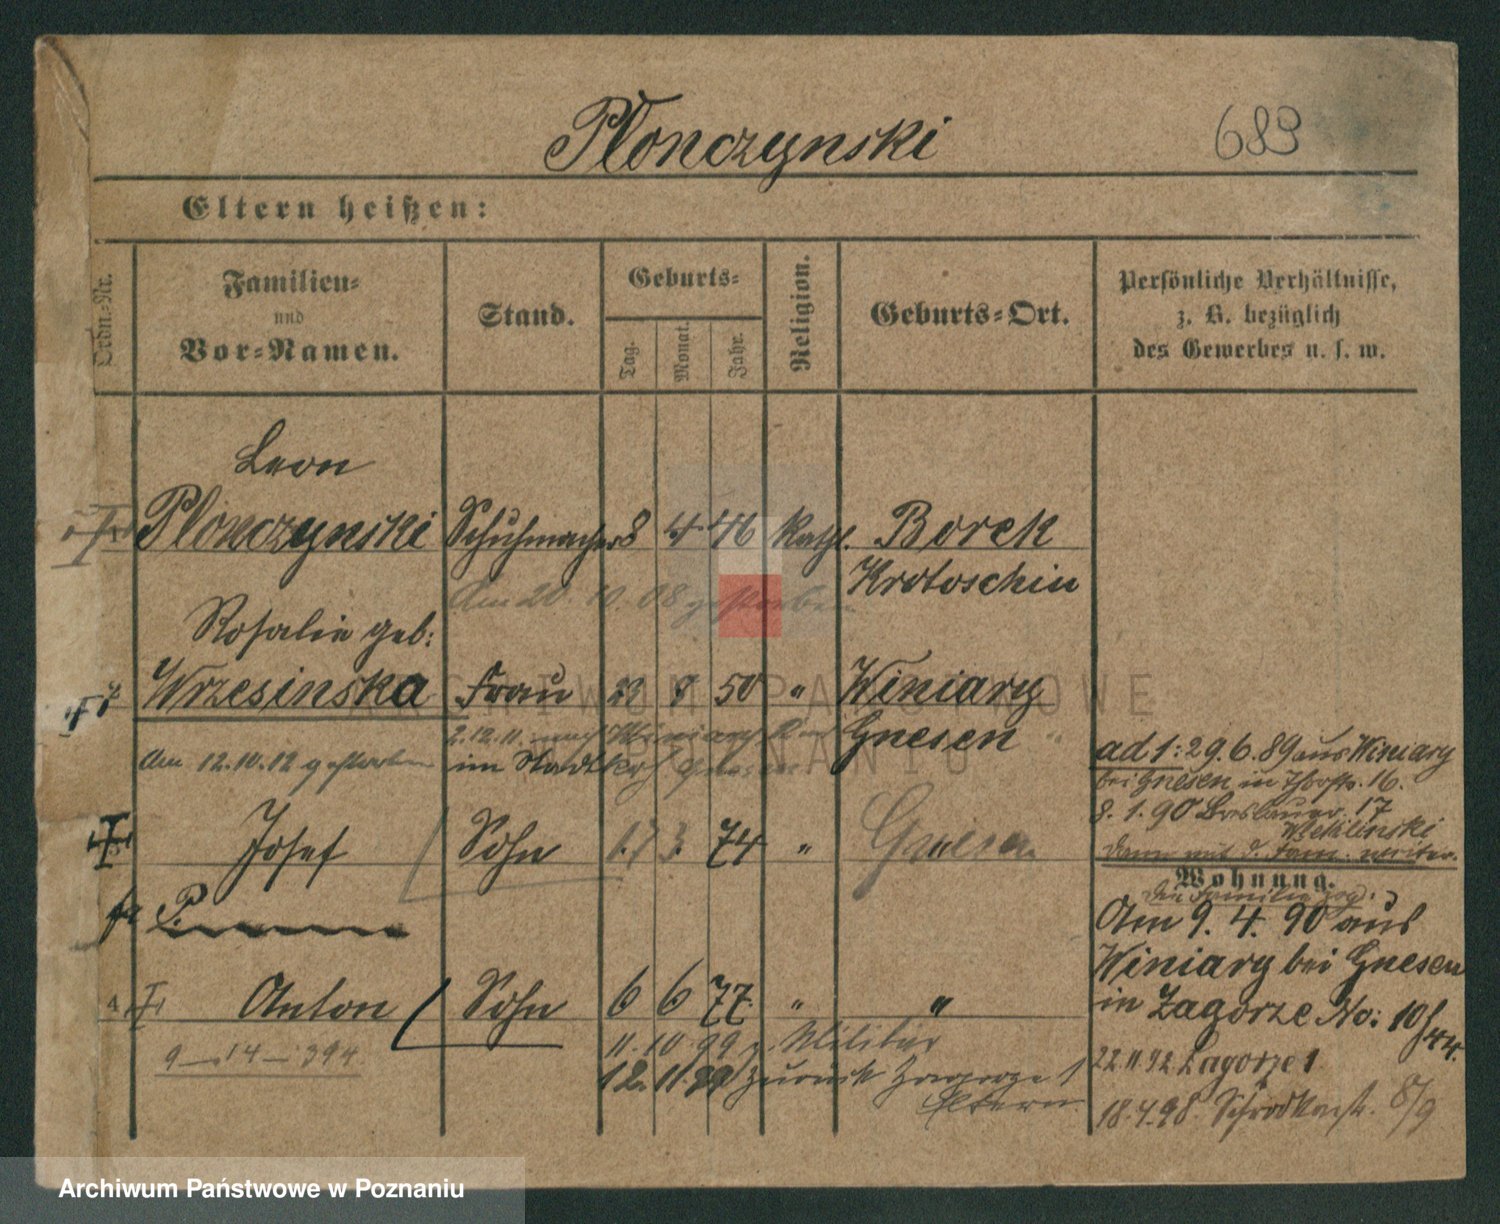 Plonczynski
689
Eltern heißen:
Ordn.-Nr.
Familien-
und
Vor-Namen.
Stand.
Geburts-
Tag.
Monat.
Jahr.
Religion.
Geburts-Ort.
Persönliche Verhältnisse,
z. B. bezüglich
des Gewerbes u. s. w.
Leon
Plonczynski Schuhmacher 8 4 46 Kath. Borek
Krotoschin
Am 20.10.08 gestorben
Rosalie geb:
Wrzesinska Frau 23 8 50 " Winiary
Gnesen
2.12.11. nach Winiary
Am 12.10.12 gestorben
im Stadt
Josef Sohn 17 3. 74 " Gnesen
4. Anton Sohn 6 6 77. " "
9-14-394
11.10.99 z. Militär
12.11. zurück Zagorze 1
Eltern
ad 1: 29.6.89 aus Winiary
bei Gnesen in Thorstr. 16.
8.1.90 Breslauer. 17
dann mit d. Fam. weiter.
Wohnung.
Die Familie zog:
Am 9. 4. 90 aus
Winiary bei Gnesen
in Zagorze No: 10/44.
22.11.92 Zagorze 1
18.4.98. Schrodkastr. 8/9
ARCHIWUM PAŃSTWOWE
W POZNANIU
Archiwum Państwowe w Poznaniu